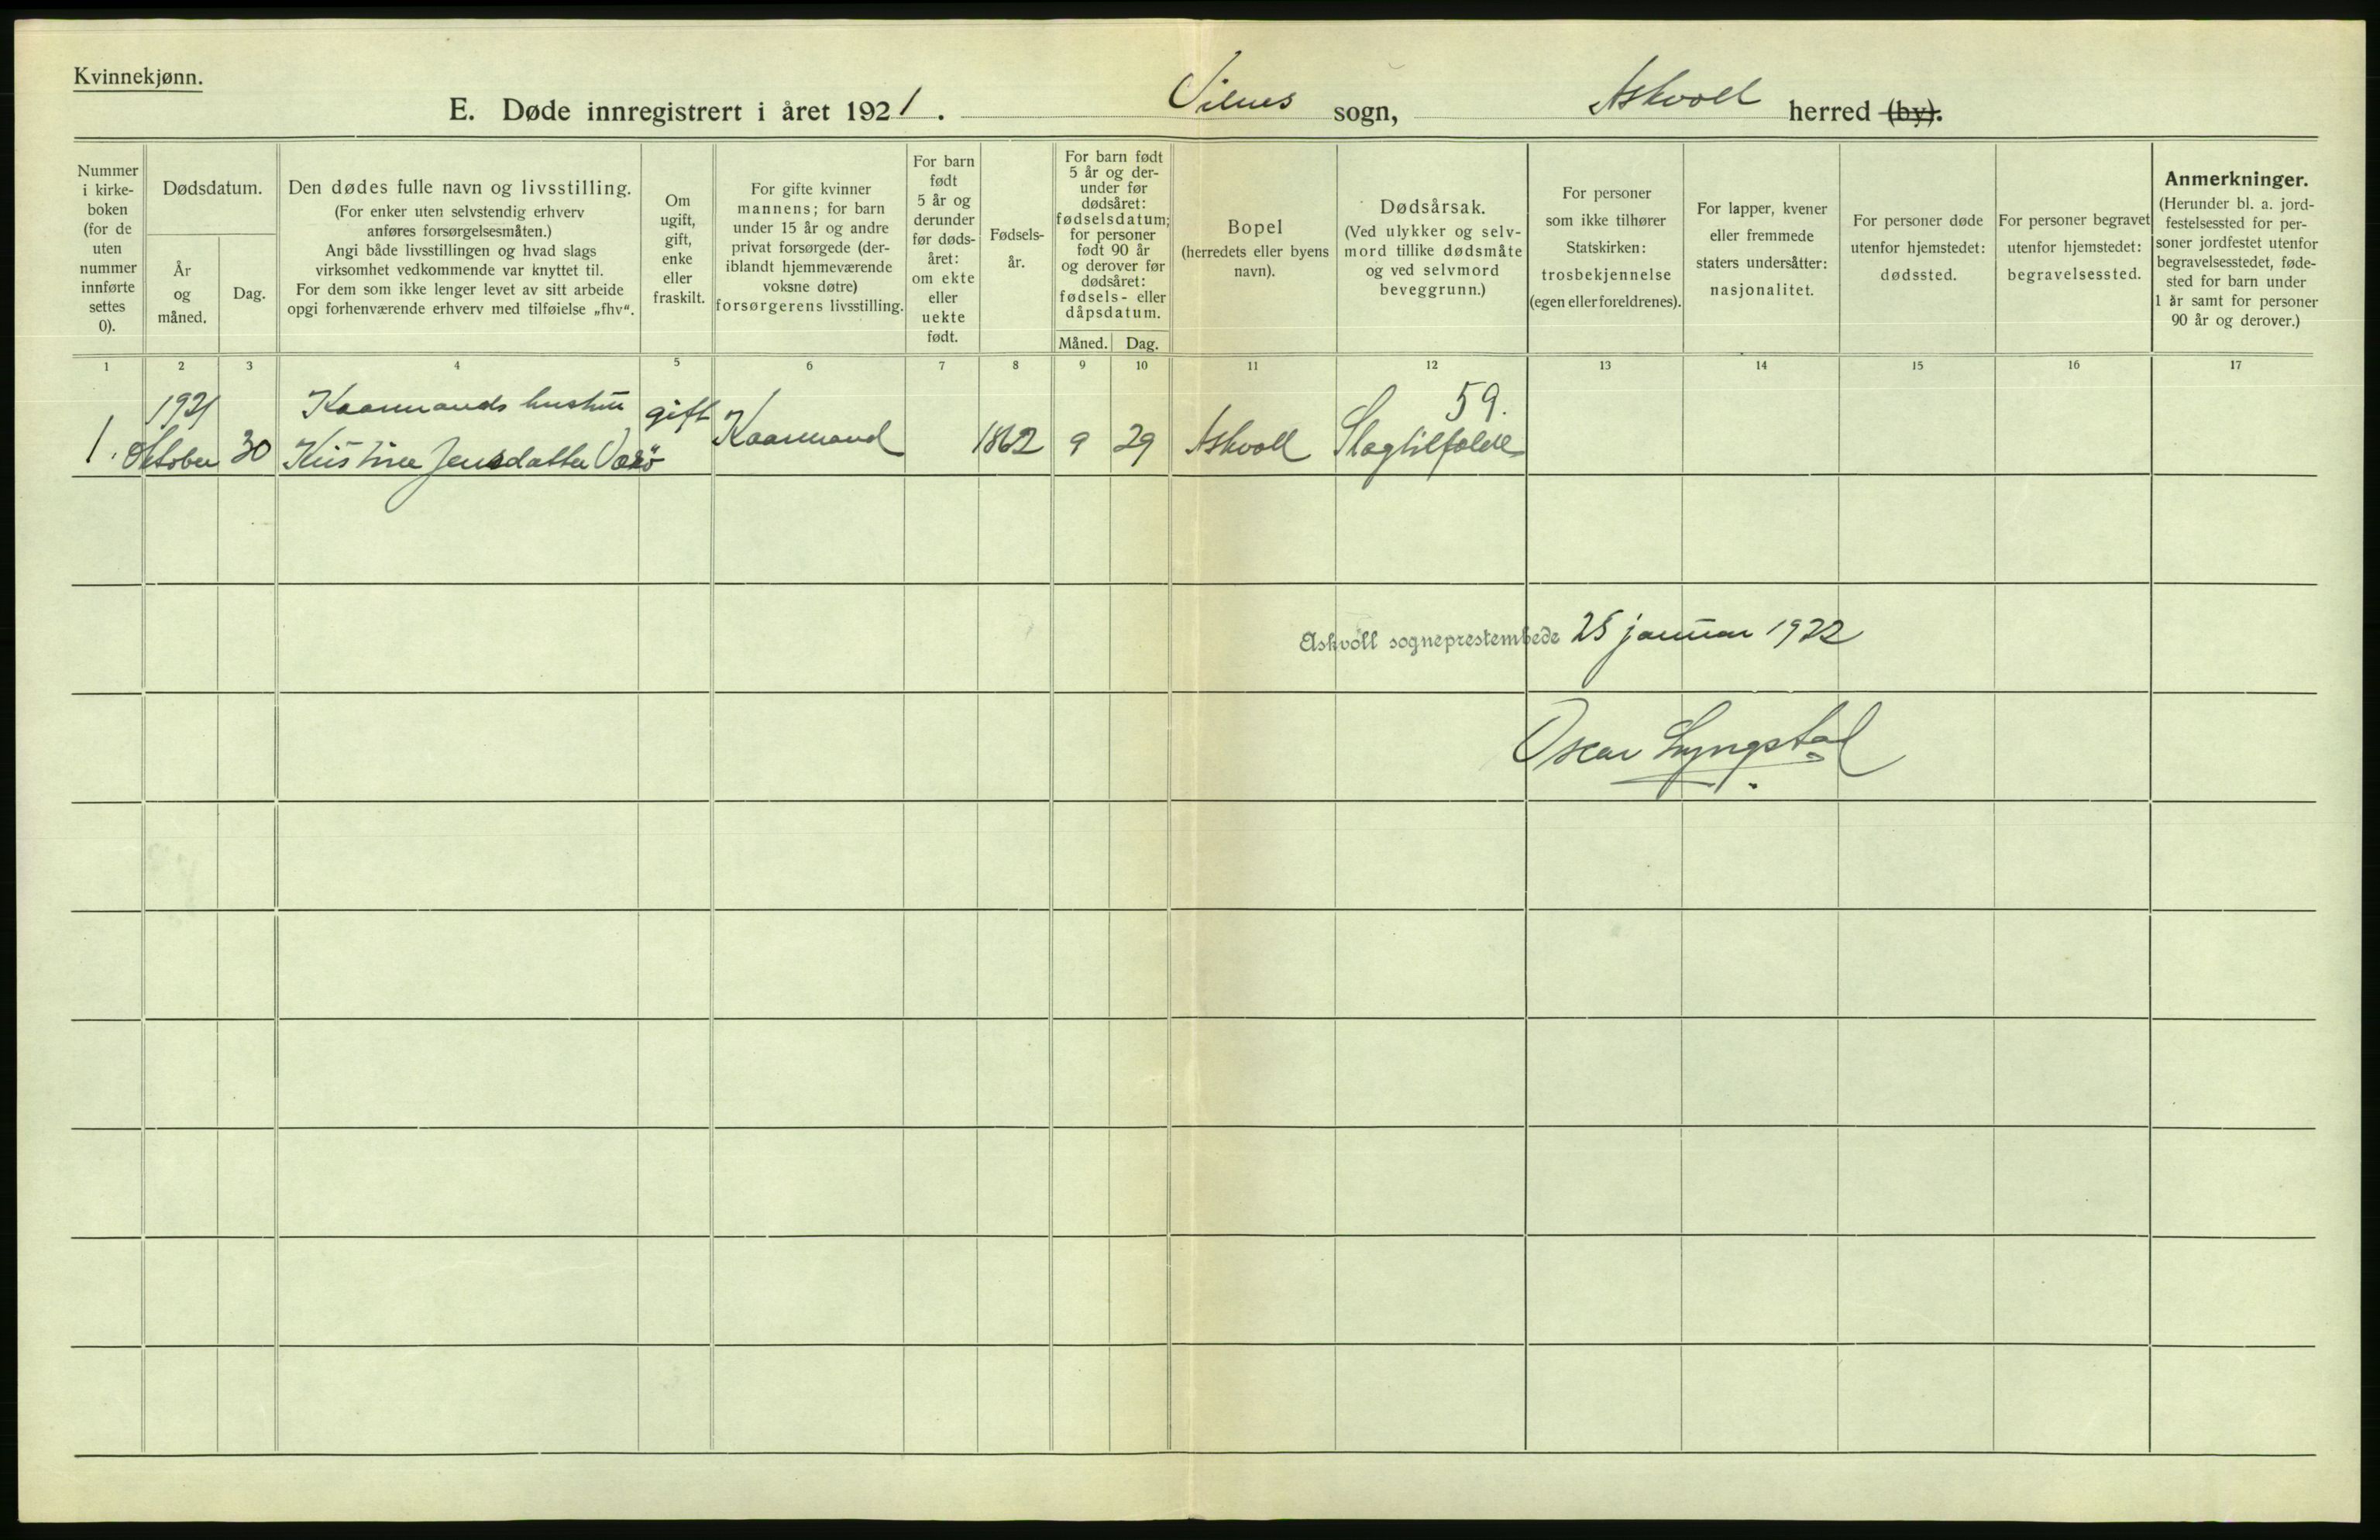 Kvinnekjønn.
E. Døde innregistrert i året 1921. Vilnes sogn, Askvoll herred (by).
Nummer i kirke-boken (for de uten nummer innførte settes 0).
Dødsdatum.
År og måned.
Dag.
Den dødes fulle navn og livsstilling.
(For enker uten selvstendig erhverv
anføres forsørgelsesmåten.)
Angi både livsstillingen og hvad slags
virksomhet vedkommende var knyttet til.
For dem som ikke lenger levet av sitt arbeide
opgi forhenværende erhverv med tilføielse „fhv“.
Om
ugift,
gift,
enke
eller
fraskilt.
For gifte kvinner
mannens; for barn
under 15 år og andre
privat forsørgede (der-
iblandt hjemmeværende
voksne døtre)
forsørgerens livsstilling.
For barn
født
5 år og
derunder
før døds-
året:
om ekte
eller
uekte
født.
Fødsels-
år.
For barn født
5 år og der-
under før
dødsåret:
fødselsdatum;
for personer
født 90 år
og derover før
dødsåret:
fødsels- eller
dåpsdatum.
Måned. Dag.
Bopel
(herredets eller byens
navn).
Dødsårsak.
(Ved ulykker og selv-
mord tillike dødsmåte
og ved selvmord
beveggrunn.)
For personer
som ikke tilhører
Statskirken:
trosbekjennelse
(egen eller foreldrenes).
For lapper, kvener
eller fremmede
staters undersåtter:
nasjonalitet.
For personer døde
utenfor hjemstedet:
dødssted.
For personer begravet
utenfor hjemstedet:
begravelsessted.
Anmerkninger.
(Herunder bl. a. jord-
festelsessted for per-
soner jordfestet utenfor
begravelsesstedet, føde-
sted for barn under
1 år samt for personer
90 år og derover.)
1 2 3 4 5 6 7 8 9 10 11 12 13 14 15 16 17
1921 Kaarmands hustru gift 59.
1. Oktober 30 Kristine Jensdatter Værö Kaarmand 1862 9 29 Askvoll Slagtilfælde
Askvoll sogneprestembede 25 januar 1922
Oscar Lyngstad